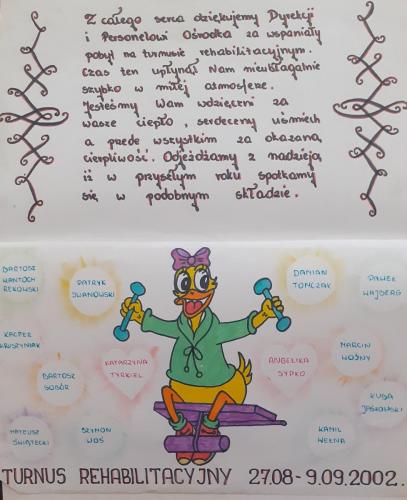 Z całego serca dziękujemy Dyrekcji
i Personelowi Ośrodka za wspaniały
pobyt na turnusie rehabilitacyjnym.
Czas ten upłynął Nam nieubłaganie
szybko w miłej atmosferze.
Jesteśmy Wam wdzięczni za
wasze ciepło, serdeczny uśmiech
a przede wszystkim za okazaną
cierpliwość. Odjeżdżamy z nadzieją
iż w przyszłym roku spotkamy
się w podobnym składzie.
BARTOSZ
WANTOCH
REKOWSKI
PATRYK
IWANOWSKI
DAMIAN
TOMCZAK
PAWEŁ
WAJBERG
KACPER
KRUSZYNIAK
KATARZYNA
TYRKIEL
ANGELIKA
SYPKO
MARCIN
WOŹNY
BARTOSZ
SOBÓR
KUBA
JASKOWSKI
MATEUSZ
ŚWIĄTECKI
SZYMON
WOŚ
KAMIL
WEŁNA
TURNUS REHABILITACYJNY 27.08-9.09.2002.